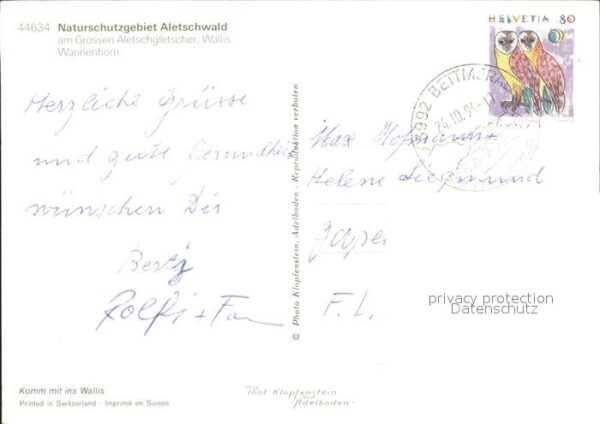 44634 Naturschutzgebiet Aletschwald
am Grossen Aletschgletscher, Wallis
Wannenhorn
HELVETIA 80
3992 BETTMERALP
Herzliche Grüsse
und gute Gesundheit
wünschen Dir
Rolfi + Fam
© Photo Klopfenstein, Adelboden - Reproduktion verboten
Max Hofmann
Helene Siegmund
F. L.
privacy protection
Datenschutz
Komm mit ins Wallis
Printed in Switzerland - Imprimé en Suisse
Phot Klopfenstein
"Adelboden"